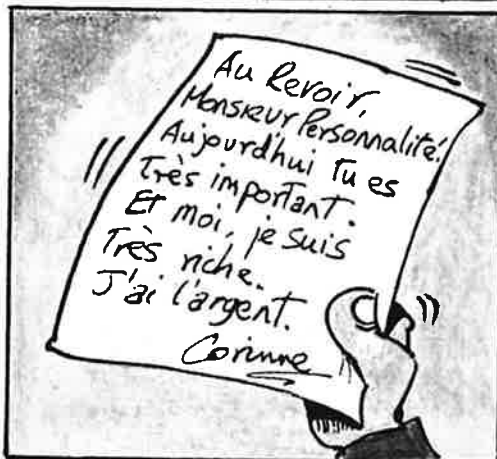 Au Revoir,
Monsieur Personnalité.
Aujourd'hui Tu es
Très important.
Et moi, je suis
Très riche.
J'ai l'argent.
Corinne